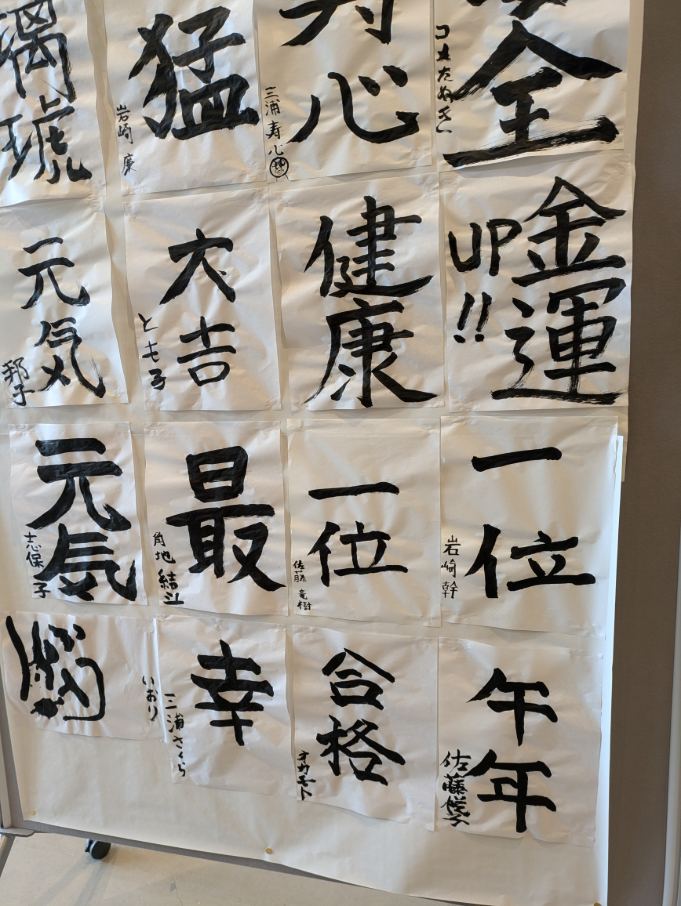 全
コメたぬき
心
三浦寿心
猛
岩崎 康
琥
金運
UP!!
健康
大吉
とも子
元気
邦子
一位
岩崎幹
一位
佐藤 竜樹
最
角地 結斗
元気
志保子
午年
佐藤
合格
オカモト
幸
三浦さくら
いおり